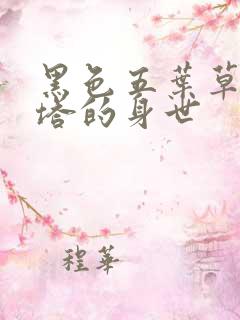 黑色五葉草
塔的身世
程華